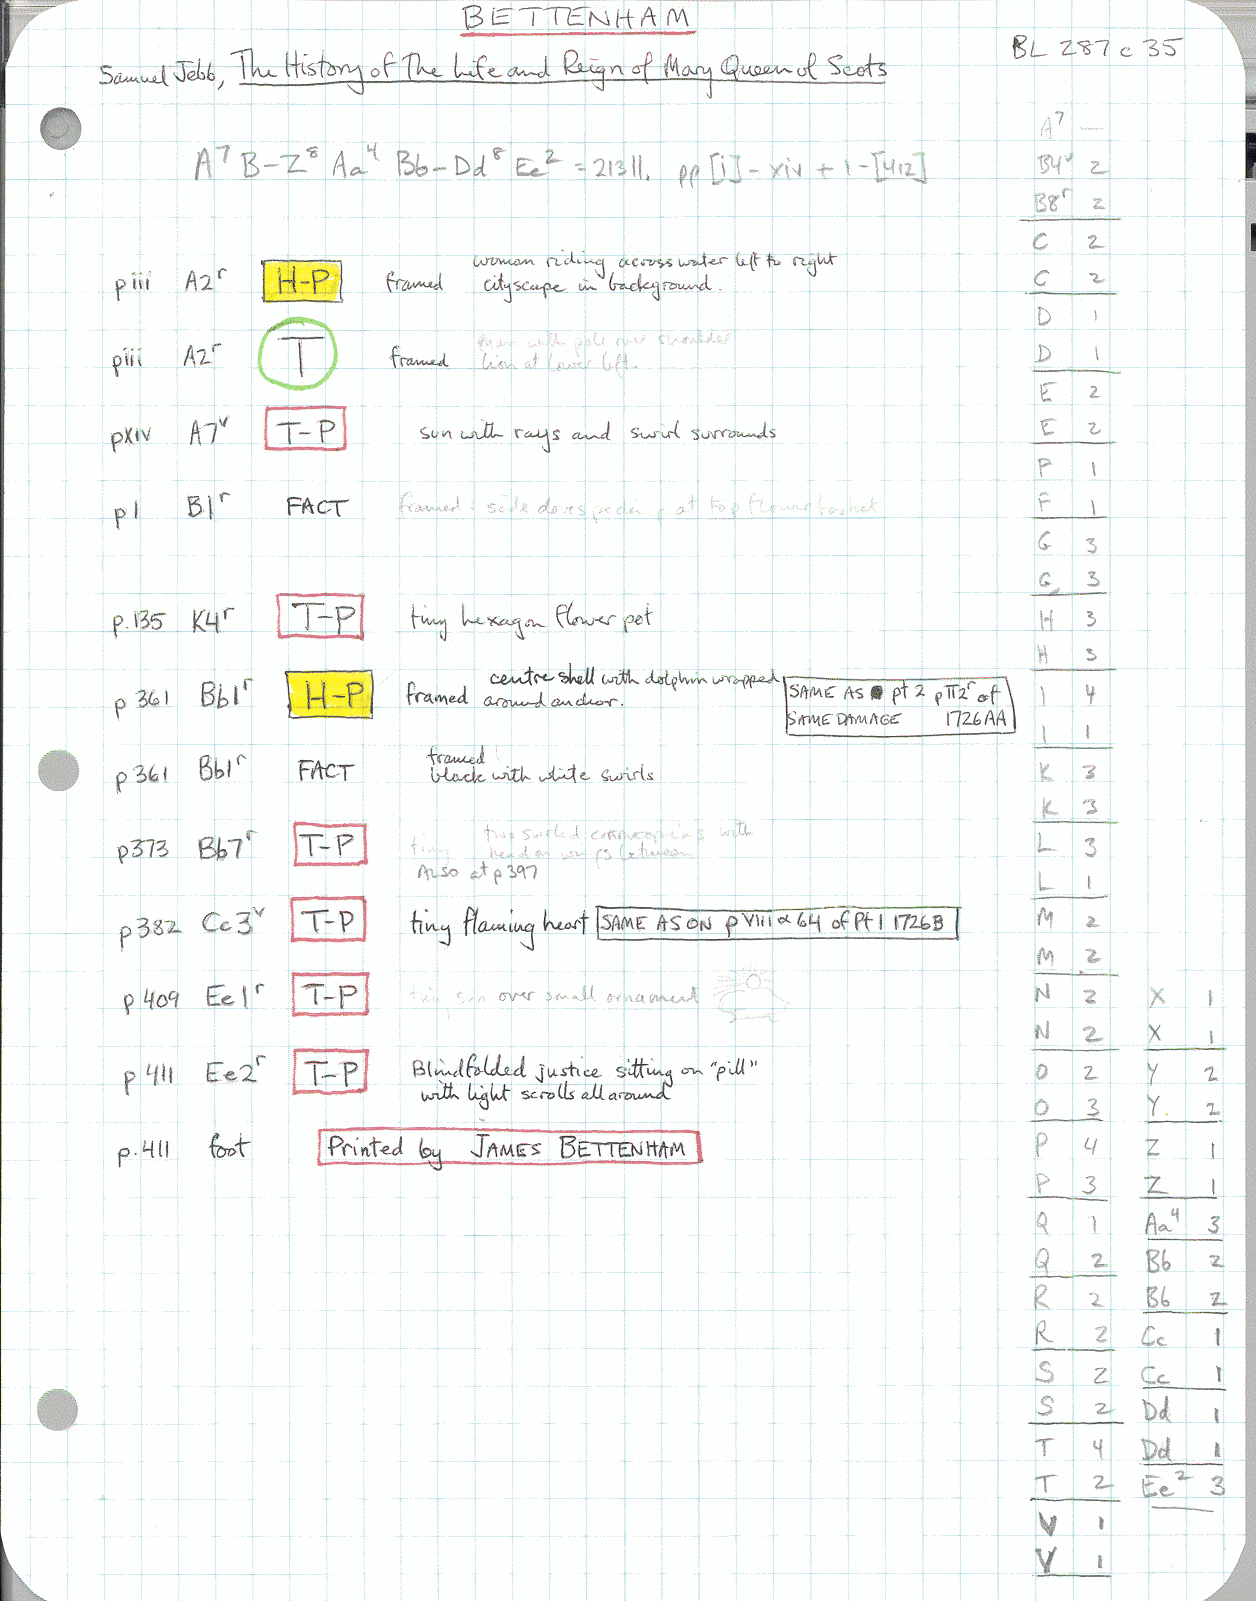 BETTENHAM
BL 287 c 35
Samuel Jebb, The History of The Life and Reign of Mary Queen of Scots
A⁷ B–Z⁸ Aa⁴ Bb–Dd⁸ Ee² = 213 ll. pp [i] – xiv + 1 – [412]
p iii A2ʳ H-P framed woman riding across water left to right
cityscape in background.
piii A2ʳ T framed man with pole over shoulder
lion at lower left.
pxiv A7ᵛ T-P sun with rays and swirl surrounds
p1 B1ʳ FACT framed: side at top flower basket
p.135 K4ʳ T-P tiny hexagon flower pot
p 361 Bb1ʳ H-P framed centre shell with dolphin wrapped
around anchor.
SAME AS pt 2 p π2ʳ of
SAME DAMAGE 1726AA
p 361 Bb1ʳ FACT framed
black with white swirls
p373 Bb7ʳ T-P tiny two swirled cornucopias with
head on between
ALSO at p 397
p382 Cc3ᵛ T-P tiny flaming heart SAME AS ON p VIII & 64 of Pt 1 1726B
p 409 Ee1ʳ T-P tiny sun over small ornament
p 411 Ee2ʳ T-P Blindfolded justice sitting on "pill"
with light scrolls all around
p.411 foot Printed by JAMES BETTENHAM
A⁷ —
B4ᵛ 2
B8ʳ 2
C 2
C 2
D 1
D 1
E 2
E 2
F 1
F 1
G 3
G 3
H 3
H 3
I 4
I 1
K 3
K 3
L 3
L 1
M 2
M 2
N 2
N 2
O 2
O 3
P 4
P 3
Q 1
Q 2
R 2
R 2
S 2
S 2
T 4
T 2
V 1
V 1
X 1
X 1
Y 2
Y. 2
Z 1
Z 1
Aa⁴ 3
Bb 2
Bb 2
Cc 1
Cc 1
Dd 1
Dd 1
Ee² 3